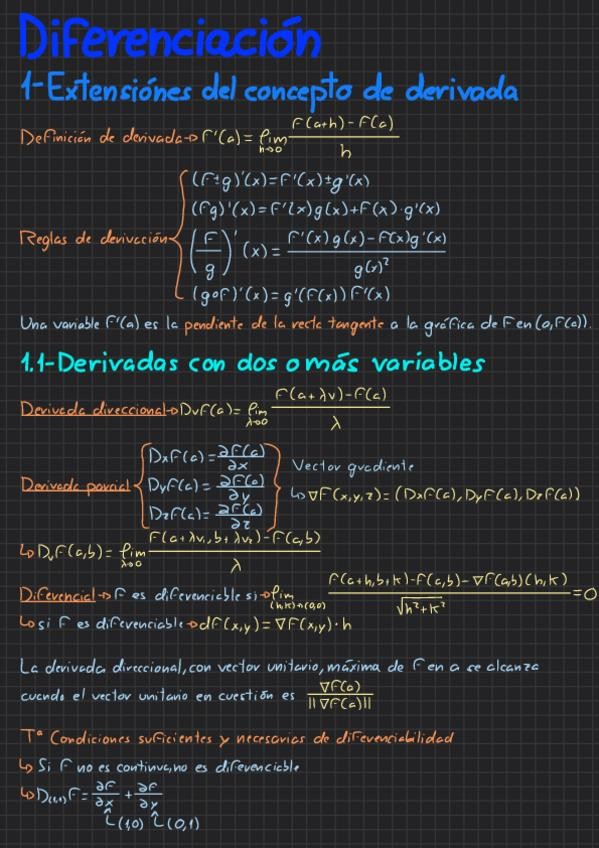 Diferenciación
1-Extensiónes del concepto de derivada
Definición de derivada→ F'(a)= lim h→0 (F(a+h)-F(a))/h
(F±g)'(x)=F'(x)±g'(x)
(Fg)'(x)=F'(x)g(x)+F(x)·g'(x)
Reglas de derivación (F/g)'(x)= (F'(x)g(x)-F(x)g'(x))/g(x)²
(g∘F)'(x)=g'(F(x))F'(x)
Una variable F'(a) es la pendiente de la recta tangente a la gráfica de F en (a,F(a)).
1.1-Derivadas con dos o más variables
Derivada direccional→DvF(a)= lim λ→0 (F(a+λv)-F(a))/λ
DxF(a)=∂F(a)/∂x
Vector gradiente
Derivada parcial DyF(a)=∂F(a)/∂y
↳∇F(x,y,z)=(DxF(a),DyF(a),DzF(a))
DzF(a)=∂F(a)/∂z
↳DvF(a,b)= lim λ→0 (F(a+λv₁,b+λv₂)-F(a,b))/λ
Diferencial→F es diferenciable si→lim (h,k)→(0,0) (F(a+h,b+k)-F(a,b)-∇F(a,b)(h,k))/√h²+k² =0
↳si F es diferenciable→dF(x,y)=∇F(x,y)·h
La derivada direccional, con vector unitario, máxima de F en a se alcanza
cuando el vector unitario en cuestión es ∇F(a)/||∇F(a)||
Tª Condiciones suficientes y necesarias de diferenciabilidad
↳Si F no es continua, no es diferenciable
↳D(1,1)F=∂F/∂x+∂F/∂y
(1,0) (0,1)